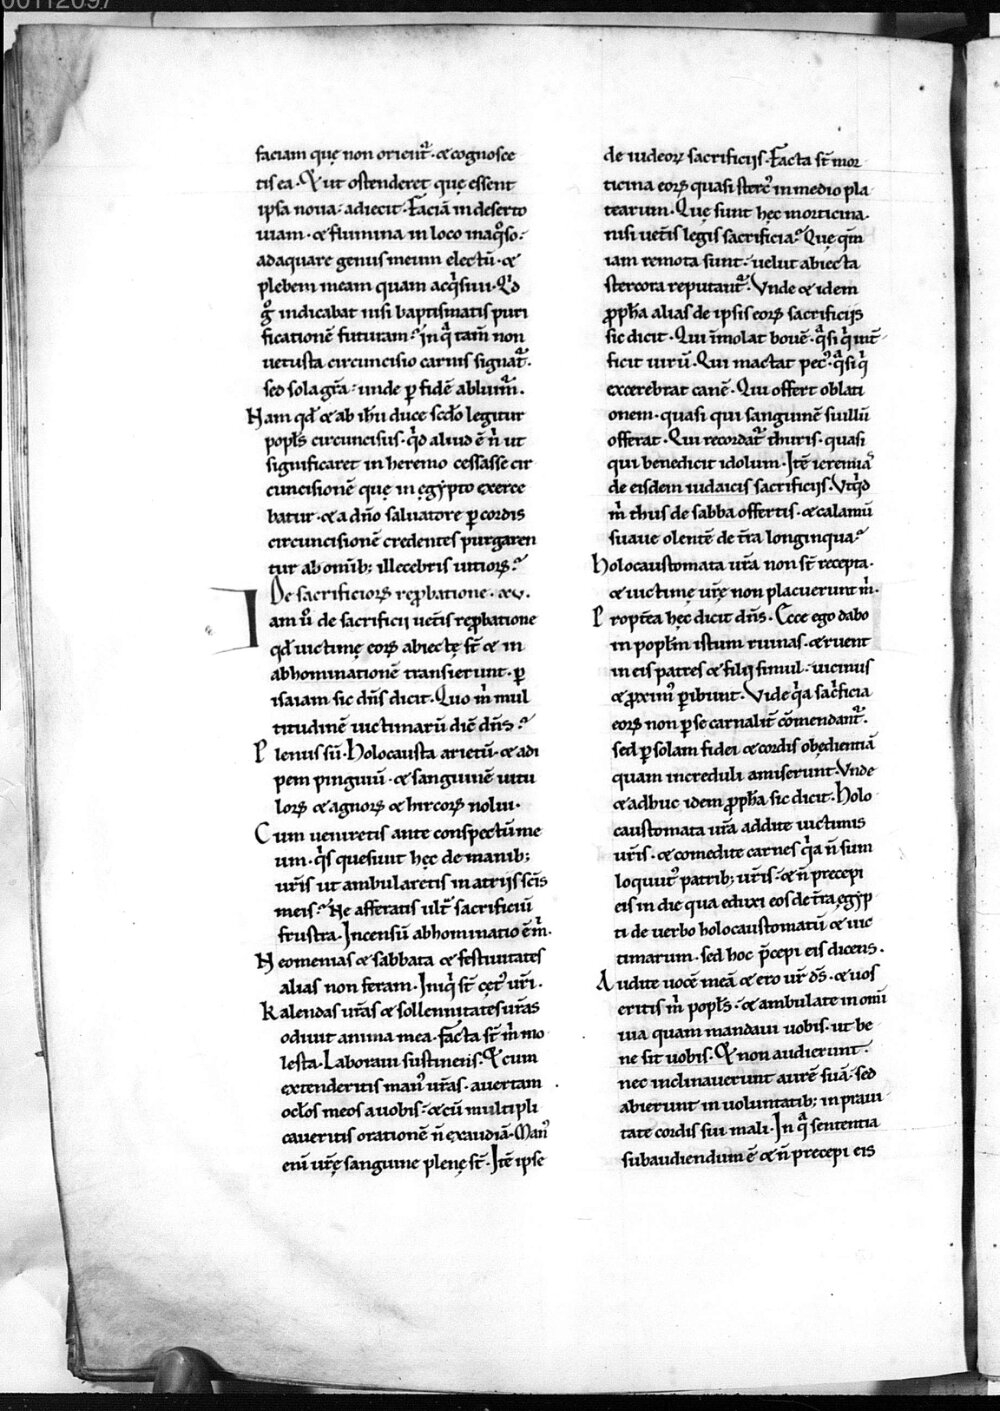 00112097
faciam quę non orient᷑ · & cognosce
tis ea · Et ut ostenderet quę essent
ipsa noua · adiecit · Faciā in deserto
uiam · & flumina in loco inaq̊so ·
adaquare genus meum electū · &
plebem meam quam acq̇siui · Qd̓
g̊ indicabat nisi baptismatis puri
ficationē futuram · in q̇ tam̄ non
uetusta circuncisio carnis signat᷑ ·
sed sola gr̄a · unde ꝑ fidē abluim᷒ ·
Nam qd̓ & ab ih̄u duce scd̓o legitur
popl̓s circuncisus · q̇d aliud ē n̄ ut
significaret in heremo cessasse cir
cuncisionē que in ęgẏpto exerce
batur · & a dn̄o saluatore ꝑ cordis
circuncisionē credentes purgaren
tur ab omib; illecebris uitioꝝ ·
De sacrificioꝝ reꝓbatione · xv ·
Iam ů de sacrificii uet̄is reꝓbatione
qd̓ uictimę eoꝝ abiectę st̄ & in
abhominationē transierunt · ꝑ
isaiam sic dn̄s dicit · Quo m̓ mul
titudinē uictimarū diē dn̄s ?
Plenus sū · Holocausta arietū · & adi
pem pinguiū · & sanguinē uitu
loꝝ & agnoꝝ & hircoꝝ nolui ·
Cum ueniretis ante conspectū me
um · q̇s quesiuit hęc de manib;
ur̄is ut ambularetis in atrijs sc̄is
meis ? Ne afferatis ult̄ sacrificiū
frustra · Incensū abhominatio ē m̓ ·
Neomenias & sabbata & festiuitates
alias non feram · Iniq̇ st̄ cęt᷒ ur̄i ·
Kalendas ur̄as & sollennitates ur̄as
odiuit anima mea · facta st̄ m̓ mo
lesta · Laboraui sustinens · Et cum
extenderitis man᷒ ur̄as · auertam
ocl̓os meos a uobis · & cū multipli
caueritis orationē n̄ exaudiā · Man᷒
eni ur̄ę sanguine plenę st̄ · Itē ipse
de iudeoꝝ sacrificijs · Facta st̄ mor
ticina eoꝝ quasi sterc᷒ in medio pla
tearum · Quę sunt hęc morticina ·
nisi uet̄is legis sacrificia ? Quę qm̄
iam remota sunt · uelut abiecta
stercora reputant᷑ · Vnde & idem
ꝓph̄a alias de ipsis eoꝝ sacrificijs
sic dicit · Qui īmolat bouē · q̄si q̇ int̓
ficit uirū · Qui mactat pec᷒ · q̄si q̇
excerebrat canē · Qui offert oblati
onem · quasi qui sanguinē suillū
offerat · Qui recordat᷑ thuris · quasi
qui benedicit idolum · Itē ieremia᷒
de eisdem iudaicis sacrificijs · Vtq̇d
m̓ thus de sabba offertis · & calamū
suaue olentē de t̄ra longinqua ?
Holocaustomata ur̄a non st̄ recepta ·
& uictimę ur̄ę non placuerunt m̓ ·
Propt̄ea hęc dicit dn̄s · Ecce ego dabo
in popl̓m istum ruinas · & ruent
in eis patres & filij simul · uicinus
& ꝓxim᷒ ꝑibunt · Vide q̇a sac̓ficia
eoꝝ non ꝑ se carnalit̄ cōmendant᷑ ·
sed ꝑ solam fidei & cordis obędientiā
quam increduli amiserunt · Vnde
& adhuc idem ꝓph̄a sic dicit · Holo
caustomata ur̄a addite uictimis
ur̄is · & comedite carnes q̇a n̄ sum
loquut᷒ patrib; ur̄is · & n̄ precepi
eis in die qua eduxi eos de t̄ra ęgẏp
ti de uerbo holocaustomatū & uic
timarum · sed hoc p̄cepi eis dicens ·
Audite uocē meā & ero ur̄ ds̄ · & uos
eritis m̓ popl̓s · & ambulate in omī
uia quam mandaui uobis · ut be
ne sit uobis · Et non audierunt ·
nec inclinauerunt aurē suā · sed
abierunt in uoluntatib; in praui
tate cordis sui mali · In q̇ sententia
subaudiendum ē & n̄ precepi eis